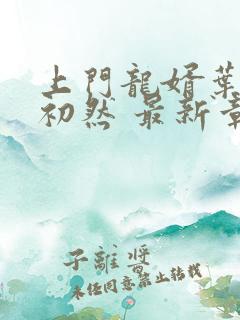 上門龍婿葉
初然 最新章
子離醬
未任同意禁止轉載